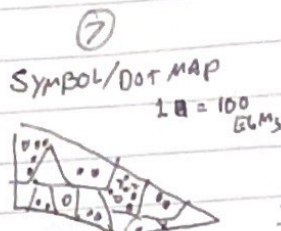 7
SYMBOL/DOT MAP
1 = 100